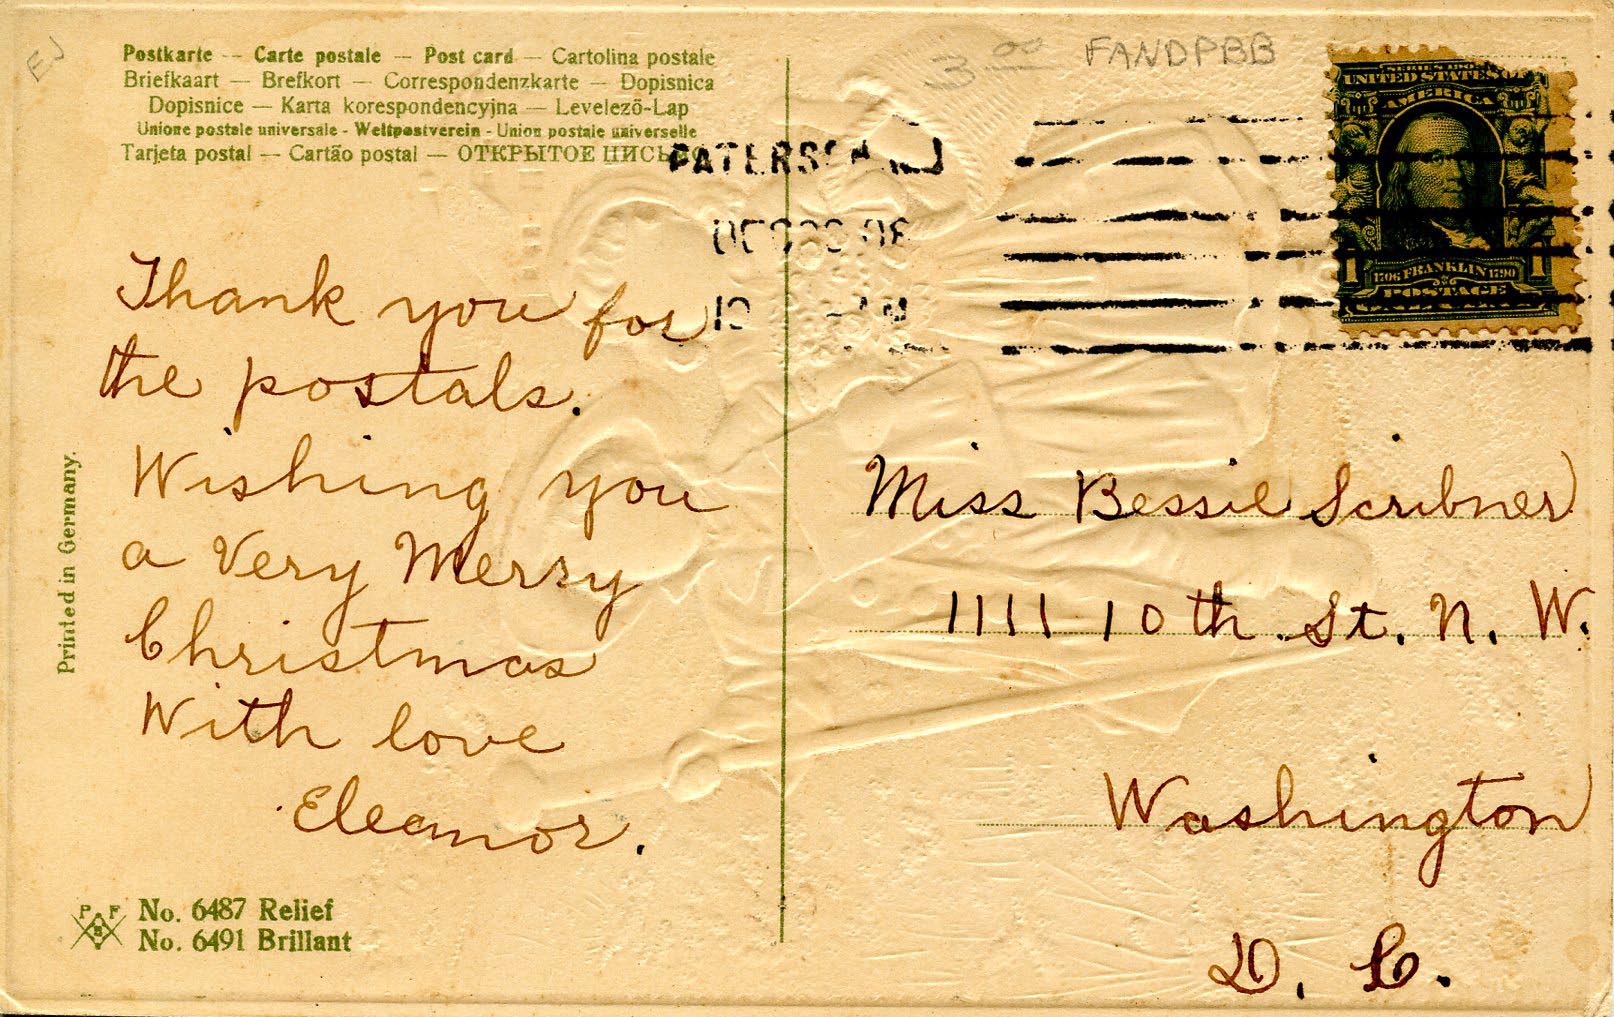 EJ
Postkarte — Carte postale — Post card — Cartolina postale
Briefkaart — Brefkort — Correspondenzkarte — Dopisnica
Dopisnice — Karta korespondencyjna — Levelező-Lap
Unione postale universale - Weltpostverein - Union postale universelle
Tarjeta postal — Cartão postal — ОТКРЫТОЕ ПИСЬМО
3 00 FANDPBB
PATERSON, N.J.
10
UNITED STATES OF
AMERICA
1 1706 FRANKLIN 1790 1
POSTAGE
Thank you for
the postals.
Wishing you
a Very Merry
Christmas
With love
Eleanor.
Miss Bessie Scribner
1111 10th St. N. W.
Washington
D. C.
Printed in Germany.
P F
B
No. 6487 Relief
No. 6491 Brillant